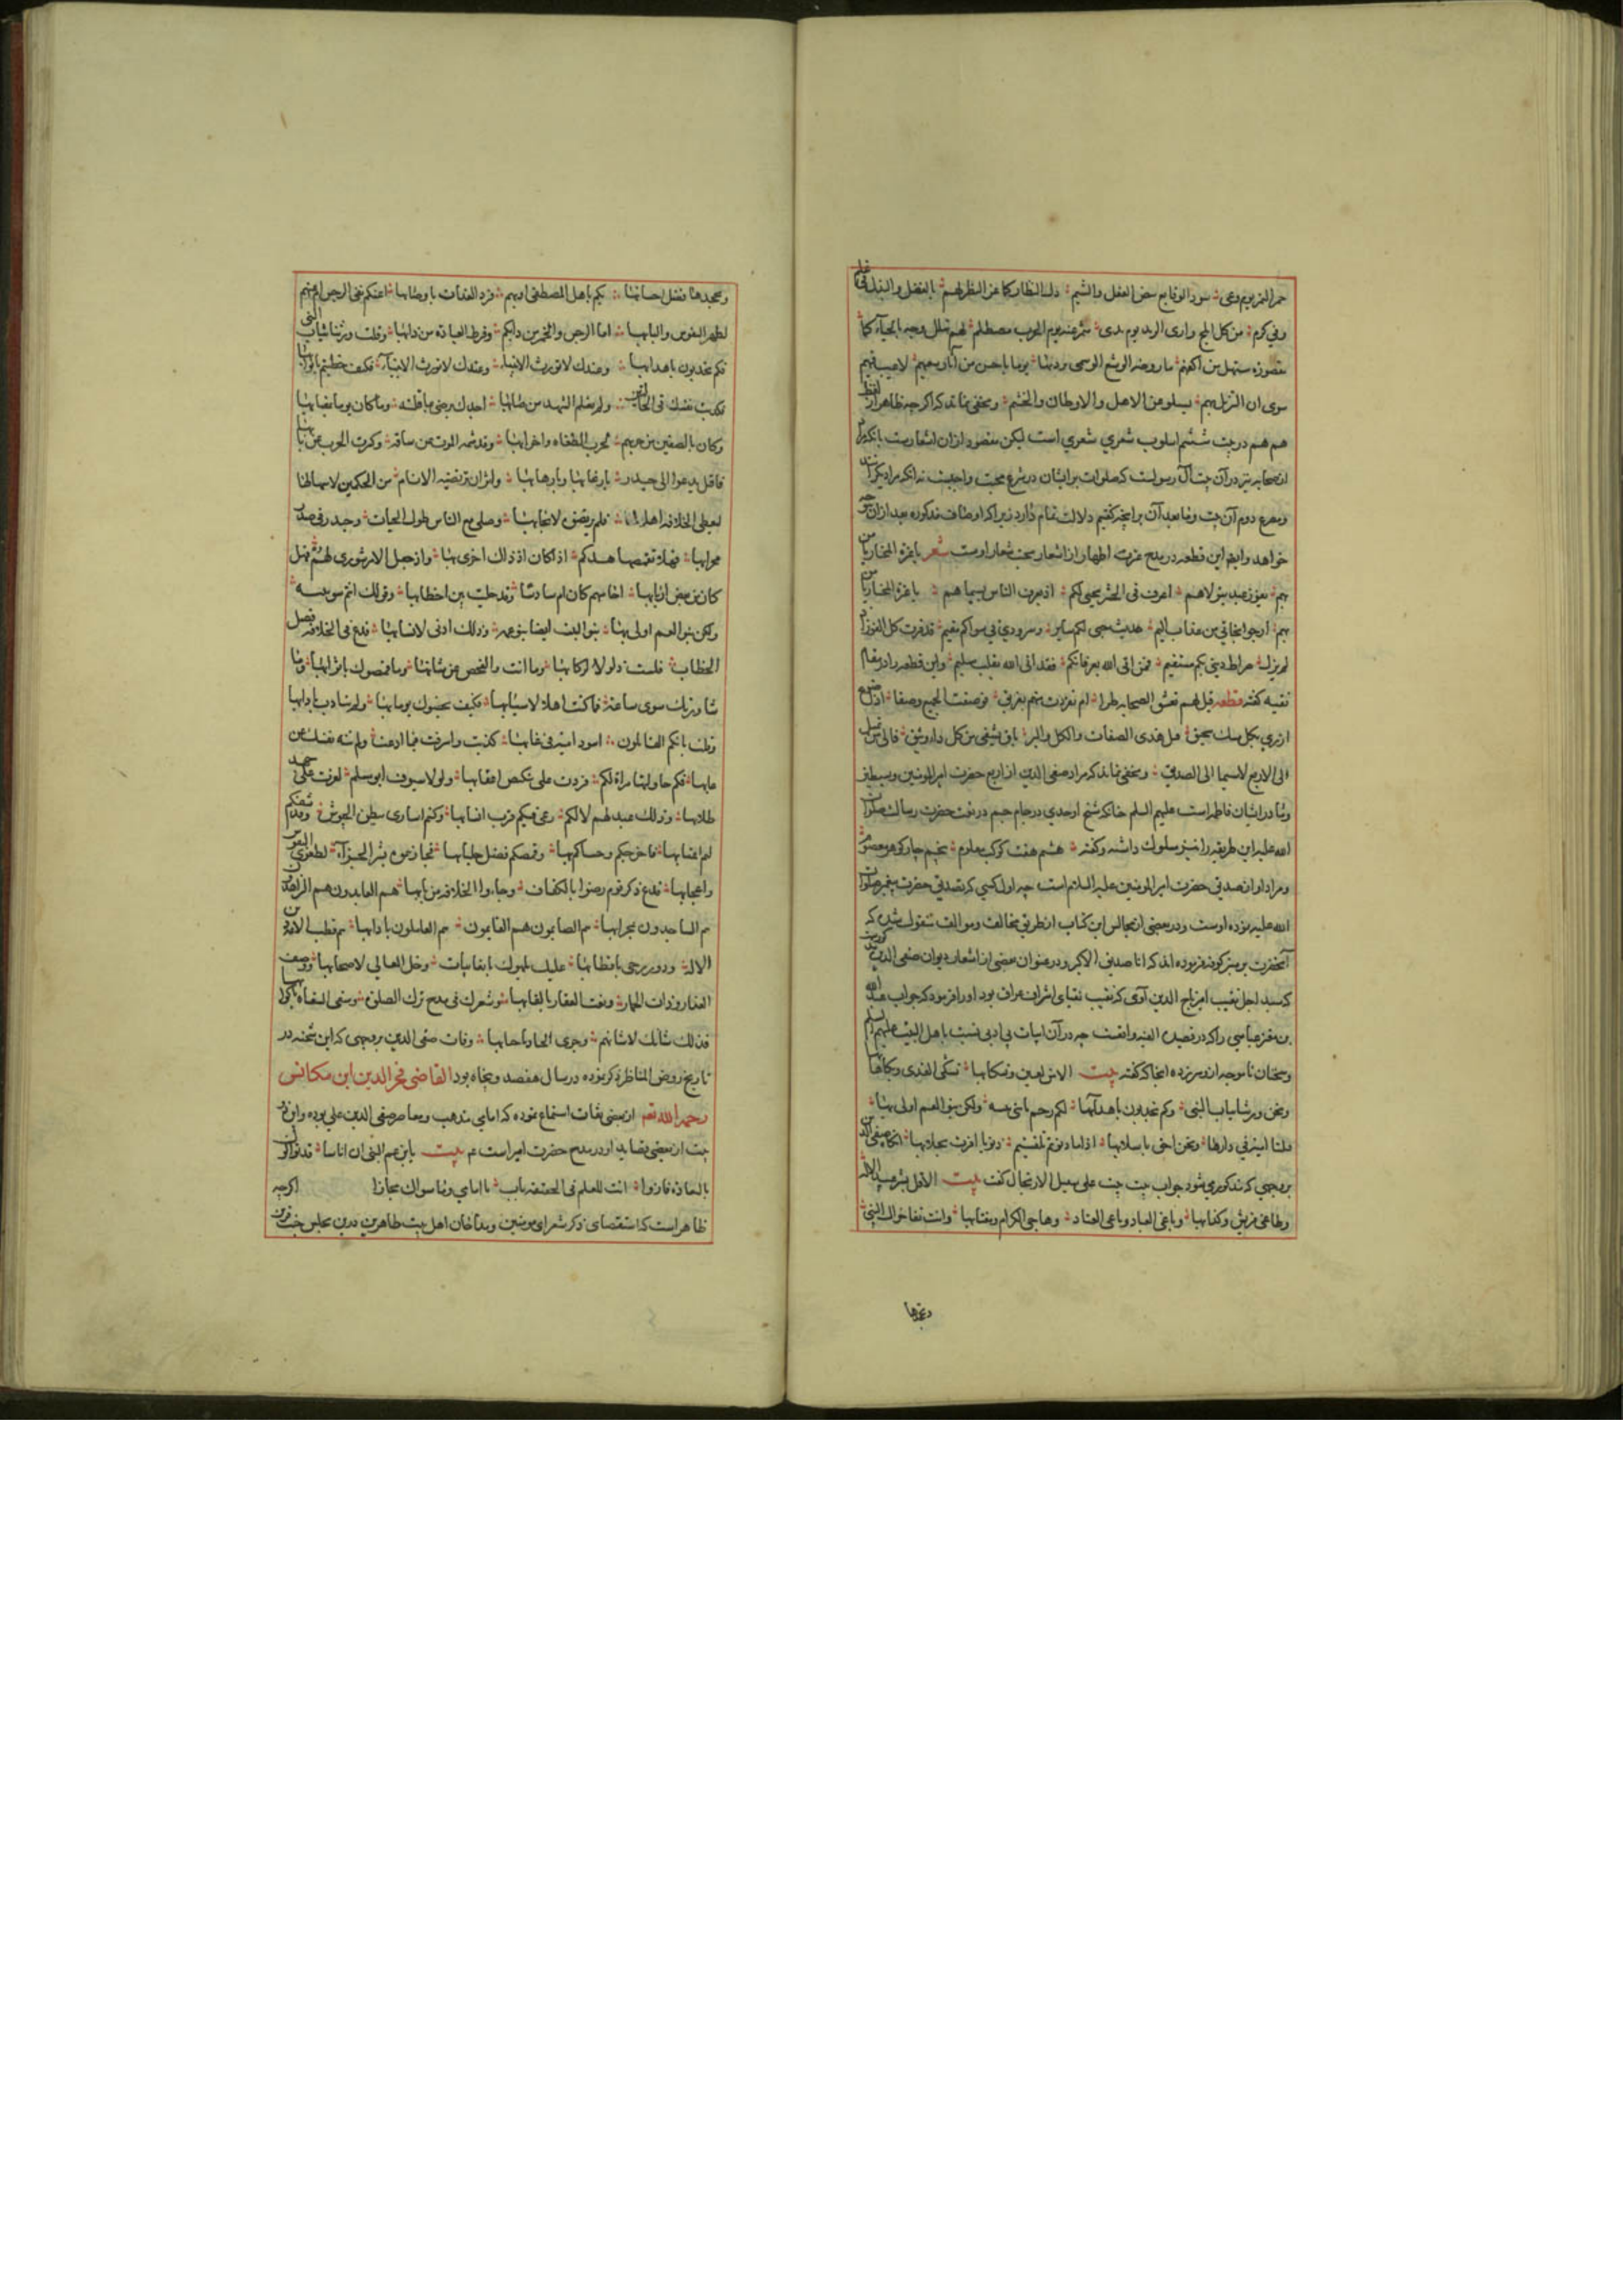 حمر النزیوم وعی سود الوقایع بیض الفعل والشیم
وفی کرم من کل ابلج واری الزند یوم ندی مشمر عنه یوم الحرب مصطلم لهم تهلل وجه بالحیاء کما
مقصوره مستهل من اکفهم ما روضه الوشع الوسمی بردتها یوما باحسن من آثار سعیهم لا عیب فیهم
سوی ان النزیل بهم یسلو عن الاهل والاوطان والحشم ومخفی نماند که اگر چه ظاهر لفظ
هم هم در بیت ششم اسلوب شعری است لیکن مقصود ازان
اصحابه نیز در آن بیت آل رسولست که صلوات بر ایشان در شرع محبت واجبست نه آنکه مراد دیگر
ومصرع دوم آن بیت وما بعد آن بر آنچه گفتیم دلالت تمام دارد زیرا که اوصاف مذکوره بعد ازان
خواهد وایضا این قطعه در مدح عترت اطهار از اشعار اوست شعر یا عترة المختار یا من
بهم یفوز عبد یتولاهم اعرف فی الحشر بحبی لکم اذ یعرف الناس بسیماهم یا عترة المختار یا من
بهم ارجو نجاتی من عذاب الیم حدیث حبی لکم سایر وسر ودی فی هواکم مقیم قد فزت کل الفوز اذ
لم یزل صراط دینی بکم مستقیم فمن اتی الله بعرفانکم فقد اتی الله بقلب سلیم واین قطعه را در مقام
تقیه گفته قطعه قیل لهم تعشق الصحابه طرا ام تفردت منهم بفریق فوصفت الجمیع وصفا اذا ضوع
ازری بکل مسک سحیق قیل هذی الصفات والکل کالدر یاق یشفی من کل داء وثیق فالی من تمیل
الی الاربع لا سیما الی الصدیق ومخفی نماند که مراد صفی الدین از اربع حضرت امیر المومنین وسبطین
ومادر ایشان فاطمه است علیهم السلم چنانکه شیخ اوحدی در جام جم در نعت حضرت رسالت صلوات
الله علیه این طریقه را نیز مسلوک داشته وگفته هشتم هفت کوکب معلوم پنجم چار گوهر معصوم
ومراد او از صدیق حضرت امیر المومنین علیه السلام است چه اول کسی که تصدیق حضرت پیغمبر صلوات
الله علیه نموده اوست ودر بعضی از مجالس این کتاب از طریق مخالف وموالف منقول شد که
آنحضرت بر منبر کوفه فرموده اند که انا صدیق الاکبر ودر عنوان بعضی از اشعار دیوان صفی الدین
که سید اجل نقیب امیر تاج الدین آوی که نقیب نقبای اشراف عراق بود او را فرمود که جواب عبد الله
بن معتز عباسی را که در قصیده واقعست چه در آن ابیات بی ادبی نسبت باهل البیت علیهم السلم
وسخنان ناموجه ازو سر زده آنجا که گفته بیت الا من لعین وتسکابها تشکی القذی وبکاها
ونحن ورثنا ثیاب النبی وکم تجذبون باهدابها لکم رحم یا بنی بنته ولکن بنو العم اولی بها
قتلنا امیة فی دارها ونحن احق باسلابها اذا ما دنوتم تلقیتم زبونا اقرت بجلابها آنگاه صفی الدین
بر وجهی که مذکور می شود جواب بیت بیت علی سبیل الارتجال گفت بیت الا قل لشر عبید الاله
وطاغی قریش وکذابها وباغی العباد وباغی العناد وهاجی الکرام ومغتابها وانت تفاخر آل النبی
وتجحدها
وتجحدها فضل احسابها بکم باهل المصطفی ام بهم فرد العداة باوصابها اعنکم نفی الرجس ام عنهم
لطهر النفوس والبابها اما الرجس والخمر من دابکم وفرط العبادة من دابها وقلت ورثنا ثیاب النبی
فکم تجذبون باهدابها وعندک لا تورث الانبیاء فکیف حظیتم باثوابها
فکذبت نفسک فی الحالتین ولم تعلم الشهد من صابها اجدک یرضی بما قلته وما کان یوما بمرتابها
وکان بصفین من حزبهم لحرب الطغاه واحزابها وقد شمر الموت عن ساقه وکشرت الحرب عن نابها
فاقبل یدعو الی حیدر بارغابها وبارهابها وآثر ان ترتضیه الانام من الحکمین لاسهابها
لیعطی الخلافه اهلا لها فلم یرتضوه لایجابها وصلی مع الناس طول الحیات وحیدر فی صدر
محرابها فهلا تقمصها جدکم اذا کان اذ ذاک احری بها واذ جعل الامر شوری لهم فهل
کان من بعض اربابها اخامسهم کان ام سادسا وقد جلیت بین خطابها وقولک انتم بنو بنته
ولکن بنو العم اولی بها بنو البنت ایضا بنو عمه وذلک ادنی لانسابها فدع فی الخلافه فصل
الخطاب فلیست ذلولا لرکابها وما انت والفحص عن شانها وما قمصوک باثوابها وما
شاورتک سوی ساعة فما کنت اهلا لاسبابها فکیف یخصوک یوما بها ولم تتادب بآدابها
وقلت بانکم القاتلون اسود امیة فی غابها کذبت واسرفت فیما ادعیت ولم تنه نفسک عن
عابها فکم حاولتها سراة لکم فردت علی نکص اعقابها ولولا سیوف ابی مسلم لعزت علی جهد
طلابها وذلک عبد لهم لا لکم رعی فیکم قرب انسابها وکنتم اساری ببطن الحبوس وقد شفکم
لثم اعتابها فاخرجکم وحباکم بها وقمصکم فضل جلبابها فجازیتموه بشر الجزاء لطغوی النفوس
واعجابها فدع ذکر قوم رضوا بالکفاف وجاءوا الخلافه من بابها هم العابدون هم الزاهدون
هم الساجدون بمحرابها هم الصایمون هم القایمون هم العاملون بآدابها هم قطب دین
الاله ودور رحی باقطابها علیک بلهوک بالغانیات وخل المعالی لاصحابها ووصف
العذار وذات الخمار ونعت العقار بالقابها وشعرک فی مدح ترک الصلوة وسقی السقاة باکوابها
فذلک شانک لا شانهم وجری الجیاد باحسابها وفات صفی الدین بر وجهی که ابن شحنه در
تاریخ روض المناظر ذکر نموده در سال هفصد وپنجاه بود القاضی فخر الدین ابن مکانس
رحمه الله تعم از بعضی ثقات استماع نموده که امامی مذهب ومعاصر صفی الدین حلی بوده واین
بیت از بعضی قصاید او در مدح حضرت امیر است ع بیت یا بن عم النبی ان اناسا قد توالوک
بالسعاده فازوا انت للعلم فی الحقیقه باب یا امامی وما سواک مجازا اگرچه
ظاهر است که استقصای ذکر شعرای مومنین ومداحان اهل بیت طاهرین درین مجلس جنت